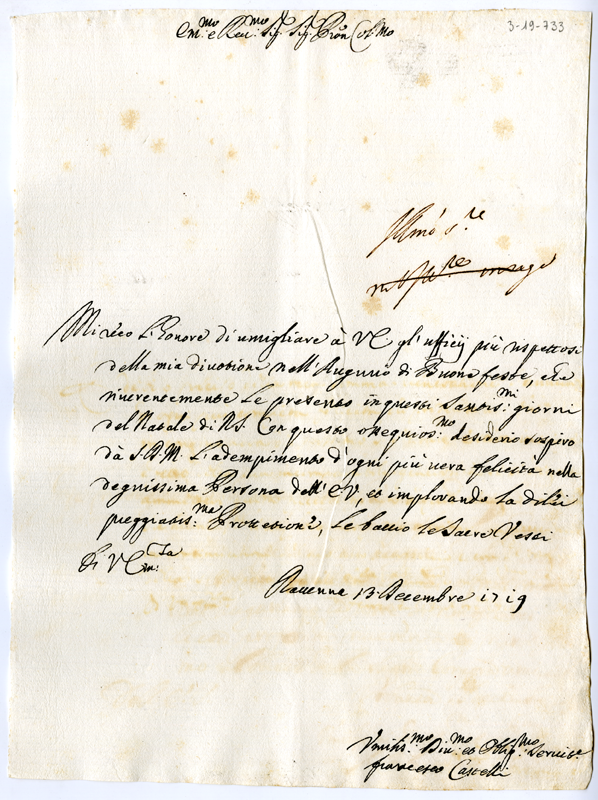 Em:mo e Reu:mo Sig: Sig: Pron Col:mo
3-19-733
Illmo S.re
Mi reco l'honore di umigliare à VE gl'ufficij più rispettosi
della mia diuotione nell'Augurio di Buone feste, che
riuerentemente Le presento in questi Santis:mi giorni
del Natale di NS. Con questo ossequios:mo desiderio sospiro
dà S.D.M. L'adempimento d'ogni più uera felicità nella
degnissima Persona dell'E.V, et implorando La di lei
preggiatis:ma Protettione, Le baccio le Sacre Vesti
Di VEm:za
Rauenna 13 Decembre 1719
Vmilis:mo Diu:mo et Oblig:mo Seruit.e
francesco Castelli